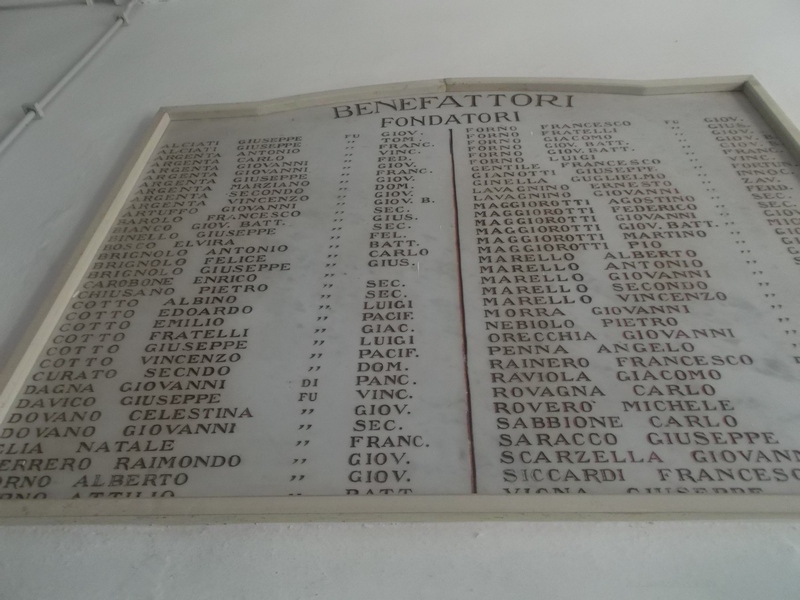 BENEFATTORI
FONDATORI
ALCIATI GIUSEPPE FU GIOV.
ALCIATI GIUSEPPE " TOM.
ARGENTA ANTONIO " FRANC.
ARGENTA CARLO " VINC.
ARGENTA GIOVANNI " FED.
ARGENTA GIOVANNI " GIOV.
ARGENTA GIUSEPPE " FRANC.
ARGENTA MARZIANO " GIOV.
ARGENTA SECONDO " DOM.
ARGENTA VINCENZO " GIOV.
ARTUFFO GIOVANNI " GIOV. B.
BAROLO FRANCESCO " SEC.
BIANCO GIOV. BATT. " GIUS.
BINELLO GIUSEPPE " SEC.
BOSCO ELVIRA " FEL.
BRIGNOLO ANTONIO " BATT.
BRIGNOLO FELICE " CARLO
BRIGNOLO GIUSEPPE " GIUS.
CAROBONE ENRICO "
CHIUSANO PIETRO " SEC.
COTTO ALBINO " SEC.
COTTO EDOARDO " LUIGI
COTTO EMILIO " PACIF.
COTTO FRATELLI " GIAC.
COTTO GIUSEPPE " LUIGI
COTTO VINCENZO " PACIF.
CURATO SECNDO " DOM.
DAGNA GIOVANNI DI PANC.
DAVICO GIUSEPPE FU VINC.
DOVANO CELESTINA " GIOV.
DOVANO GIOVANNI " SEC.
NATALE " FRANC.
RAIMONDO " GIOV.
ALBERTO " GIOV.
ATTILIO " BATT.
FORNO FRANCESCO FU GIOV.
FORNO FRATELLI " GIUS.
FORNO GIACOMO " GIOV.
FORNO GIOV. BATT. "
FORNO GIOV. BATT. "
FORNO LUIGI "
GENTILE FRANCESCO " VINC.
GIANOTTI GIUSEPPE "
GINELLA GUGLIELMO "
LAVAGNINO ERNESTO " ZAV.
LAVAGNINO GIOVANNI " FERD.
MAGGIOROTTI AGOSTINO " SEC.
MAGGIOROTTI FEDERICO " SEC.
MAGGIOROTTI GIOVANNI "
MAGGIOROTTI GIOV. BATT. "
MAGGIOROTTI MARTINO "
MAGGIOROTTI PIO "
MARELLO ALBERTO "
MARELLO ANTONIO "
MARELLO GIOVANNI "
MARELLO SECONDO "
MARELLO VINCENZO "
MORRA GIOVANNI "
NEBIOLO PIETRO "
ORECCHIA GIOVANNI "
PENNA ANGELO "
RAINERO FRANCESCO
RAVIOLA GIACOMO
ROVAGNA CARLO
ROVERO' MICHELE
SABBIONE CARLO
SARACCO GIUSEPPE
SCARZELLA GIOVANN
SICCARDI FRANCESC
VIGNA GIUSEPPE